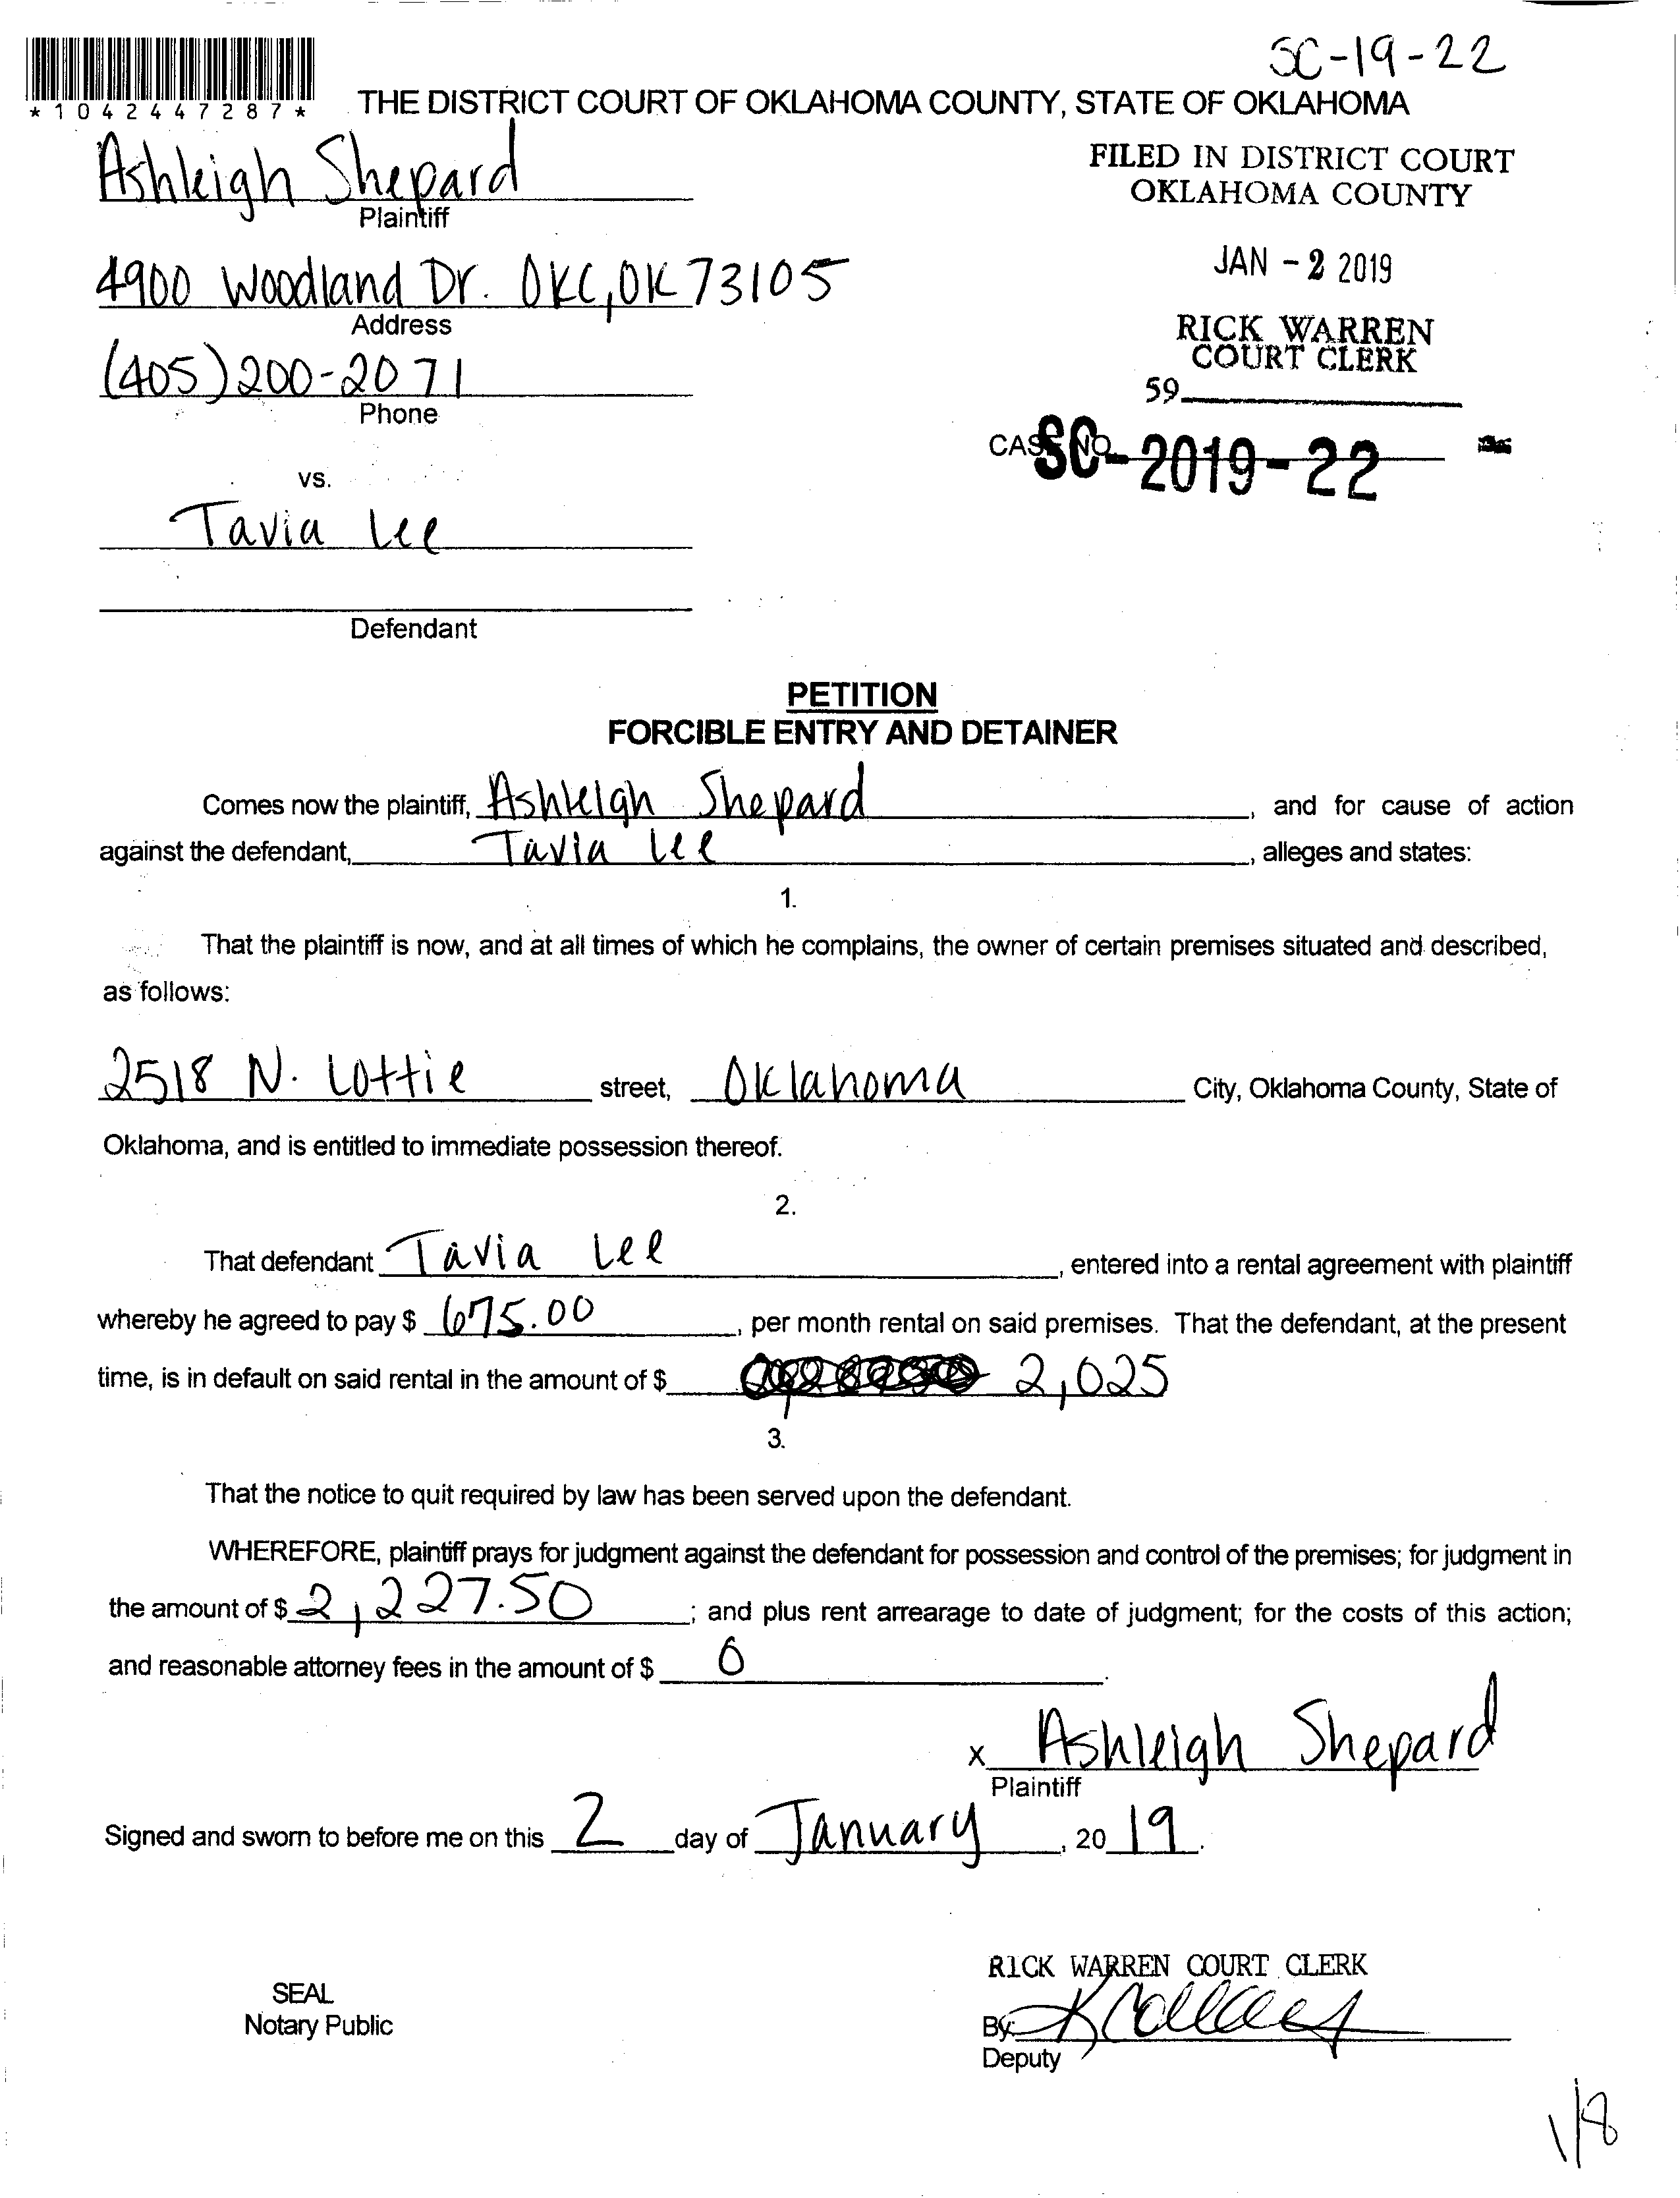 SC-19-22
*1042447287*
THE DISTRICT COURT OF OKLAHOMA COUNTY, STATE OF OKLAHOMA
Ashleigh Shepard
Plaintiff
FILED IN DISTRICT COURT
OKLAHOMA COUNTY
4900 Woodland Dr. OKC, OK 73105
Address
JAN - 2 2019
(405) 200-2071
Phone
RICK WARREN
COURT CLERK
59
CASE NO. SC-2019-22
vs.
Tavia Lee
Defendant
PETITION
FORCIBLE ENTRY AND DETAINER
Comes now the plaintiff, Ashleigh Shepard, and for cause of action
against the defendant, Tavia Lee, alleges and states:
1.
That the plaintiff is now, and at all times of which he complains, the owner of certain premises situated and described,
as follows:
2518 N. Lottie street, Oklahoma City, Oklahoma County, State of
Oklahoma, and is entitled to immediate possession thereof.
2.
That defendant Tavia Lee, entered into a rental agreement with plaintiff
whereby he agreed to pay $ 675.00, per month rental on said premises. That the defendant, at the present
time, is in default on said rental in the amount of $ 2,025
3.
That the notice to quit required by law has been served upon the defendant.
WHEREFORE, plaintiff prays for judgment against the defendant for possession and control of the premises; for judgment in
the amount of $ 2,227.50; and plus rent arrearage to date of judgment; for the costs of this action;
and reasonable attorney fees in the amount of $ 0.
x Ashleigh Shepard
Plaintiff
Signed and sworn to before me on this 2 day of January, 2019.
RICK WARREN COURT CLERK
SEAL
Notary Public
By:
Deputy
1/8